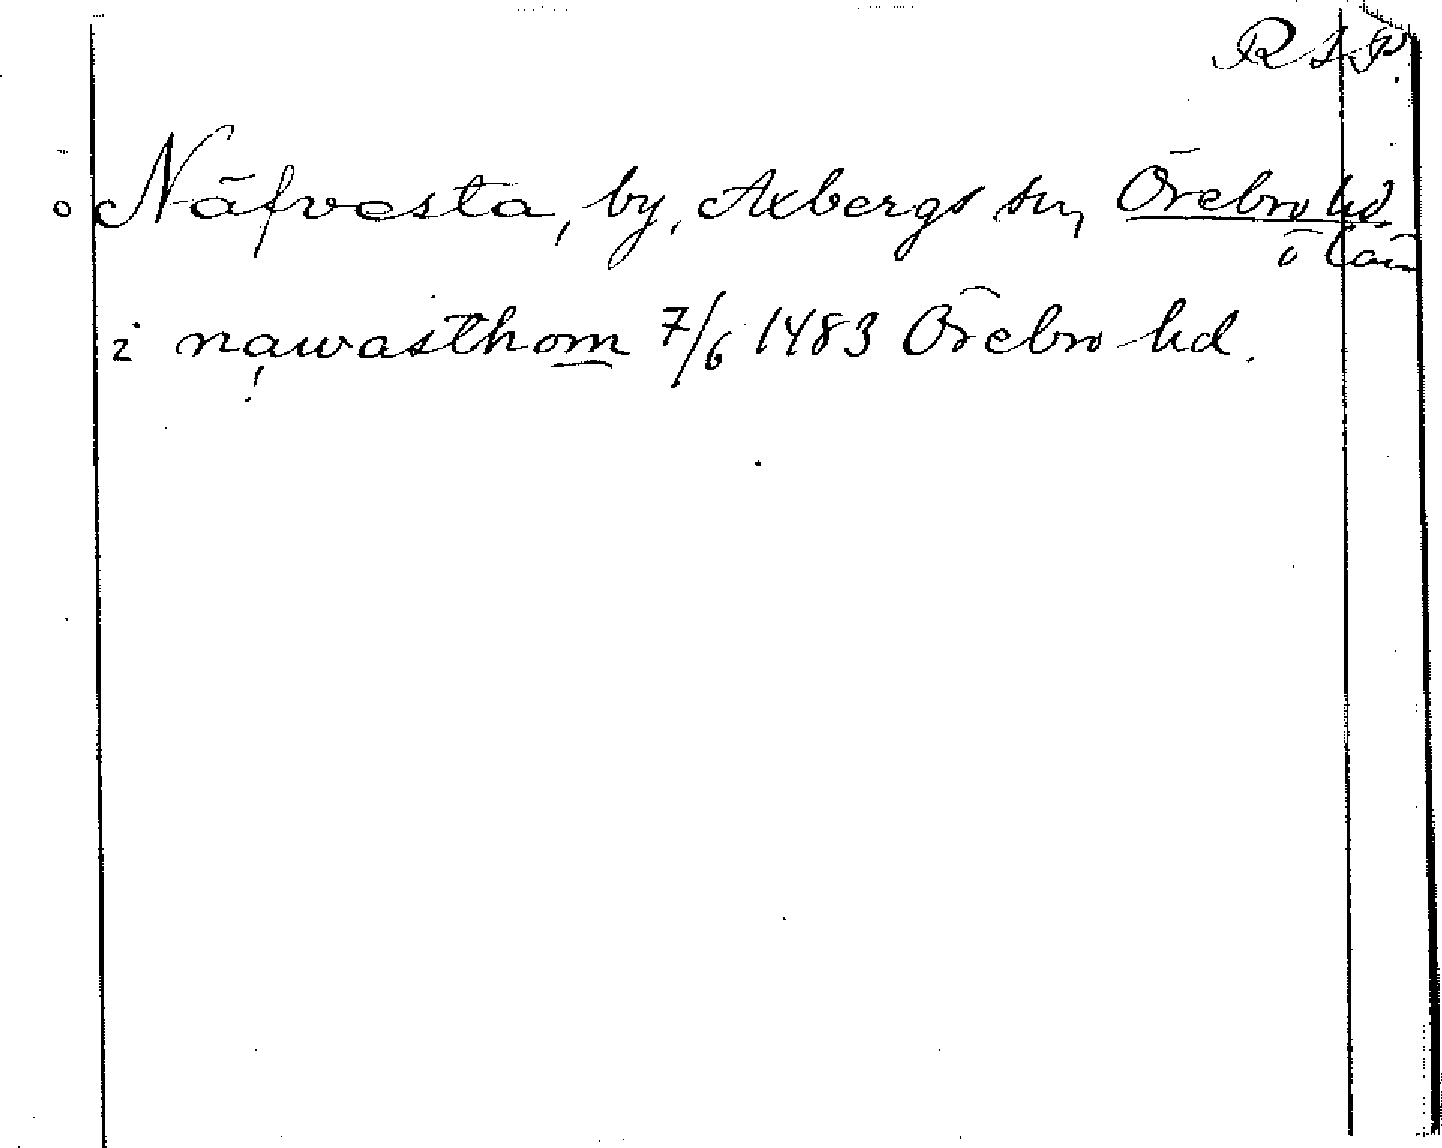 Näfvesta, by, Axbergs sn, Örebro hd,
ö län
i nawasthom 7/6 1483 Örebro hd.